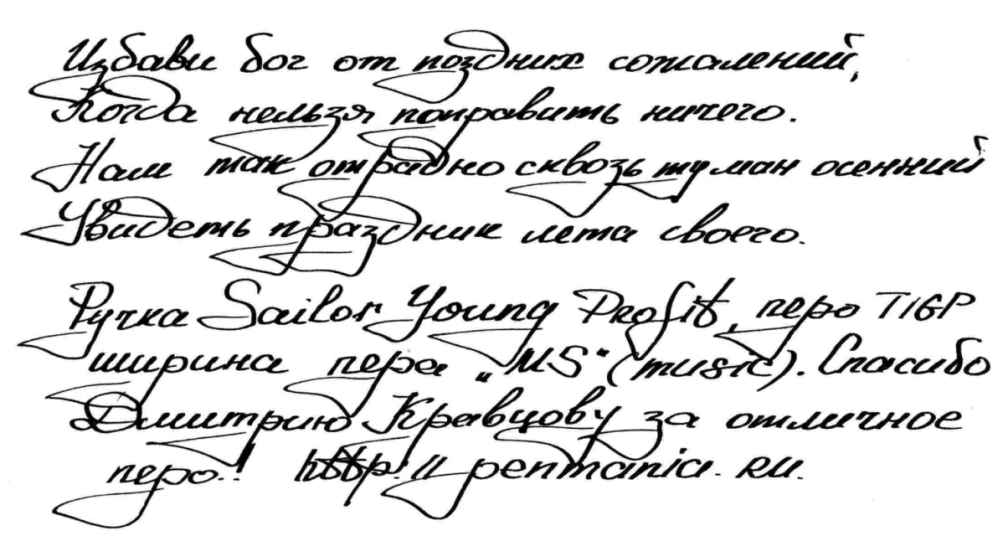 Избави бог от поздних сожалений,
Когда нельзя поправить ничего.
Нам так отрадно сквозь туман осенний
Увидеть праздник лета своего.
Ручка Sailor Young Profit, перо TIGP
ширина пера „MS" (music). Спасибо
Дмитрию Кравцову за отличное
перо.! http://penmania.ru.